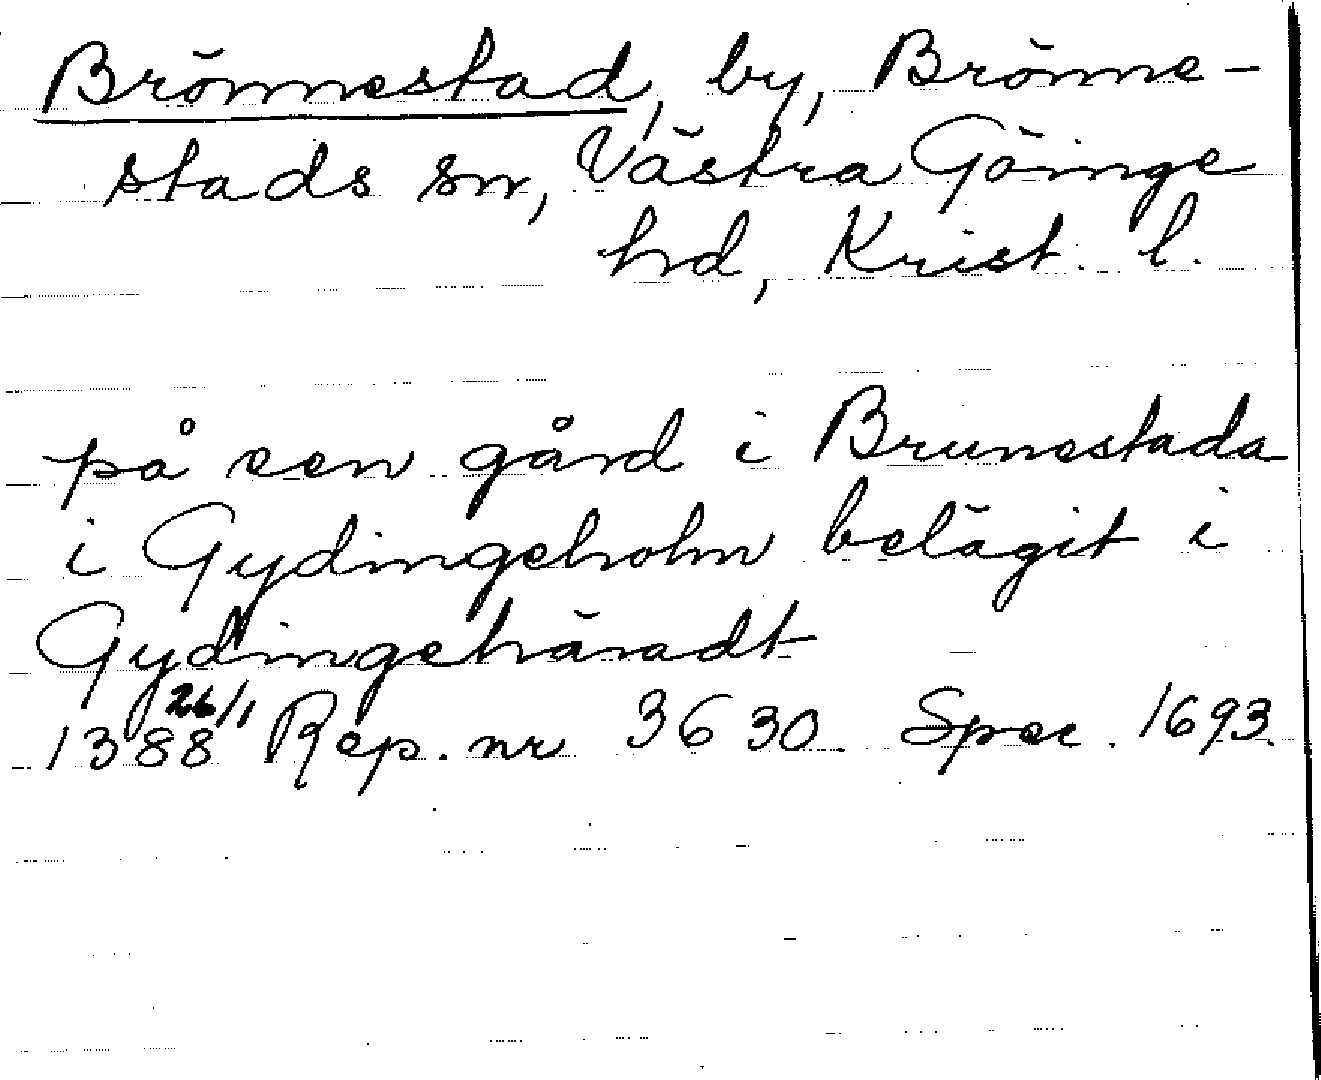 Brönnestad, by, Brönne-
stads sn, Västra Göinge
hd, Krist. l.
på een gård i Brunestada
i Gydingeholm belägit i
Gydingehäradt
1388 26/1 Rep. nr 3630. Spec. 1693.